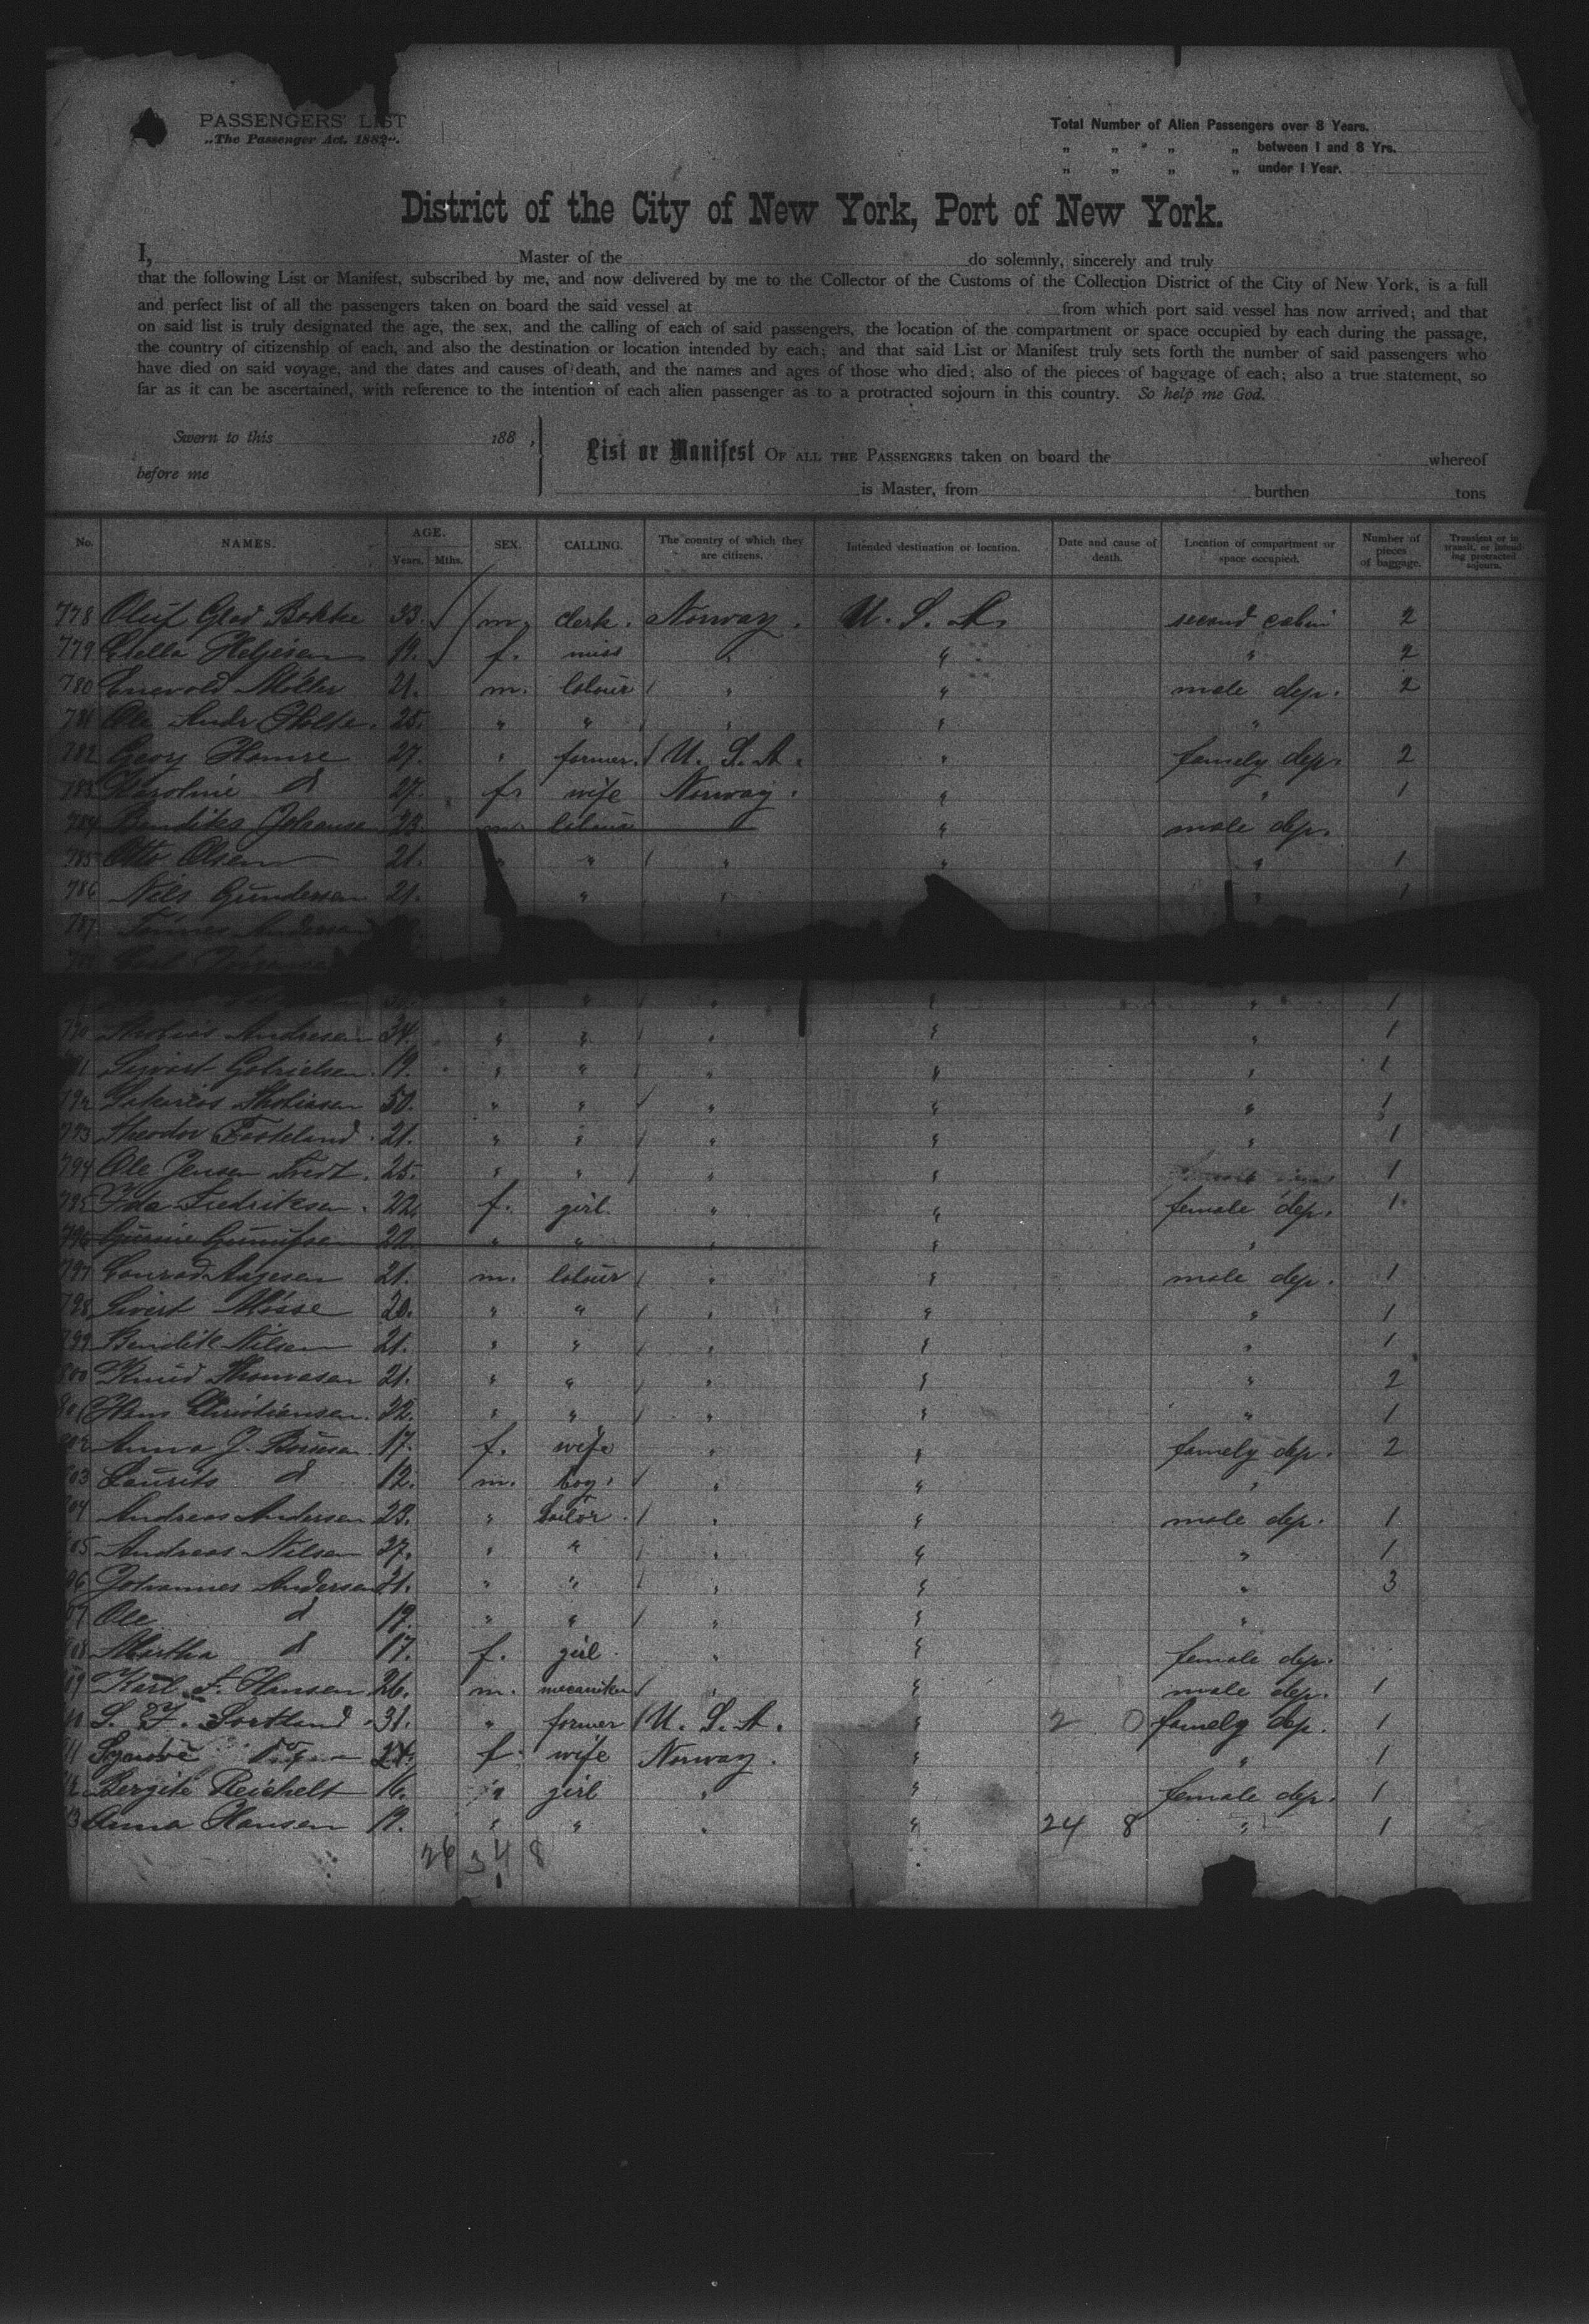 PASSENGERS' LIST
„The Passenger Act. 1882".
Total Number of Alien Passengers over 8 Years.
„ „ „ „ between 1 and 8 Yrs.
„ „ „ „ under 1 Year.
District of the City of New York, Port of New York.
I, Master of the do solemnly, sincerely and truly
that the following List or Manifest, subscribed by me, and now delivered by me to the Collector of the Customs of the Collection District of the City of New York, is a full
and perfect list of all the passengers taken on board the said vessel at from which port said vessel has now arrived; and that
on said list is truly designated the age, the sex, and the calling of each of said passengers, the location of the compartment or space occupied by each during the passage,
the country of citizenship of each, and also the destination or location intended by each; and that said List or Manifest truly sets forth the number of said passengers who
have died on said voyage, and the dates and causes of death, and the names and ages of those who died; also of the pieces of baggage of each; also a true statement, so
far as it can be ascertained, with reference to the intention of each alien passenger as to a protracted sojourn in this country. So help me God.
Sworn to this 188 ,
before me
List or Manifest OF ALL THE PASSENGERS taken on board the whereof
is Master, from burthen tons
No. NAMES. AGE. Years. Mths. SEX. CALLING. The country of which they are citizens. Intended destination or location. Date and cause of death. Location of compartment or space occupied. Number of pieces of baggage. Transient or in transit, or intending protracted sojourn.
778 Oluf Glad Bakke 33. m. clerk. Norway. U. S. A. second cabin 2
779 Helgesen 19. f. miss " " " 2
780 Enevold Möller 21. m. labour " " male dep. 2
781 Ole Andr Holte. 25. " " " " "
782 Georg 27. " farmer. U. S. A. " famely dep. 2
783 Karoline d 27. f. wife Norway. " " 1
784 23. m. labour " " male dep.
785 Otto Olsen 21. " " " " " 1
786 Nils Gundersen 21. " " " 1
787 Tönnes Andersen
788
" " " " " 1
790 Andresen 34. " " " " " 1
791 Sivert 19. " " " " " 1
792 50. " " " " " 1
793 Theodor 21. " " " " " 1
794 Ole Jensen 25. " " " " 1
795 Ida Fredriksen. 22. f. girl. " " female dep. 1
796 22. " " " " "
797 Conrad Aagesen 21. m. labour " " male dep. 1
798 Sivert 20. " " " " " 1
799 Bendik Nilsen 21. " " " " " 1
800 Knud Thomasen 21. " " " " " 2
801 Hans Christiansen. 22. " " " " " 1
802 Anna J. 17. f. wife " " famely dep. 2
803 Laurits d 12. m. boy. " " "
804 Andreas Andersen 23. " Sailor. " " male dep. 1
805 Andreas Nilsen 27. " " " " " 1
806 Johannes Andersen 21. " " " " " 3
807 Ole d 19. " " " " "
808 Martha d 17. f. girl " " female dep.
809 Karl F. Hansen 26. m. mecaniker " " male dep. 1
810 31. " farmer U. S. A. " 2 0 famely dep. 1
811 24. f. wife Norway. " " 1
812 Bergite Reichelt 16. " girl " " female dep. 1
813 Anna Hansen 19. " " " " 24 8 " 1